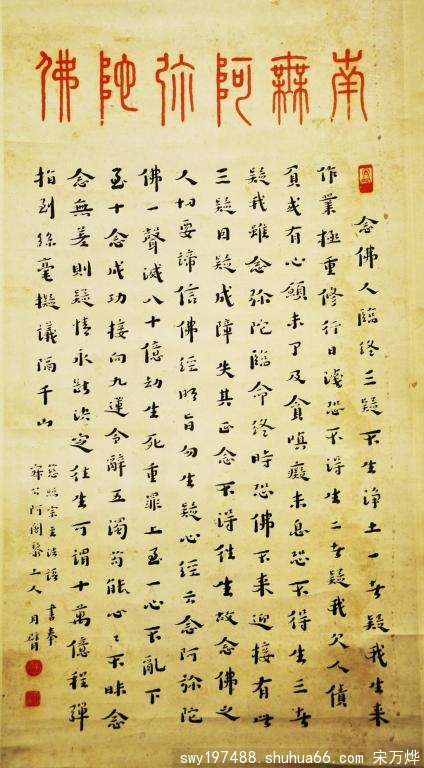 南無阿弥陀佛
念佛人臨終三疑不生淨土一者疑我生来
作業極重修行日淺恐不得生二者疑我欠人債
負或有心願未了及貪嗔癡未息恐不得生三者
疑我雖念弥陀臨命終時恐佛不来迎接有此
三疑因疑成障失其正念不得往生故念佛之
人切要諦信佛經明旨勿生疑心經云念阿弥陀
佛一聲滅八十億劫生死重罪上至一心不亂下
至十念成功接向九蓮令辭五濁苟能心〻不昧念
念無差則疑情永斷決定往生可謂十萬億程彈
指到絲毫擬議隔千山
慈照宗主法語 書奉
公阿闍黎上人 月臂
swy197488.shuhua66.com 宋万烨